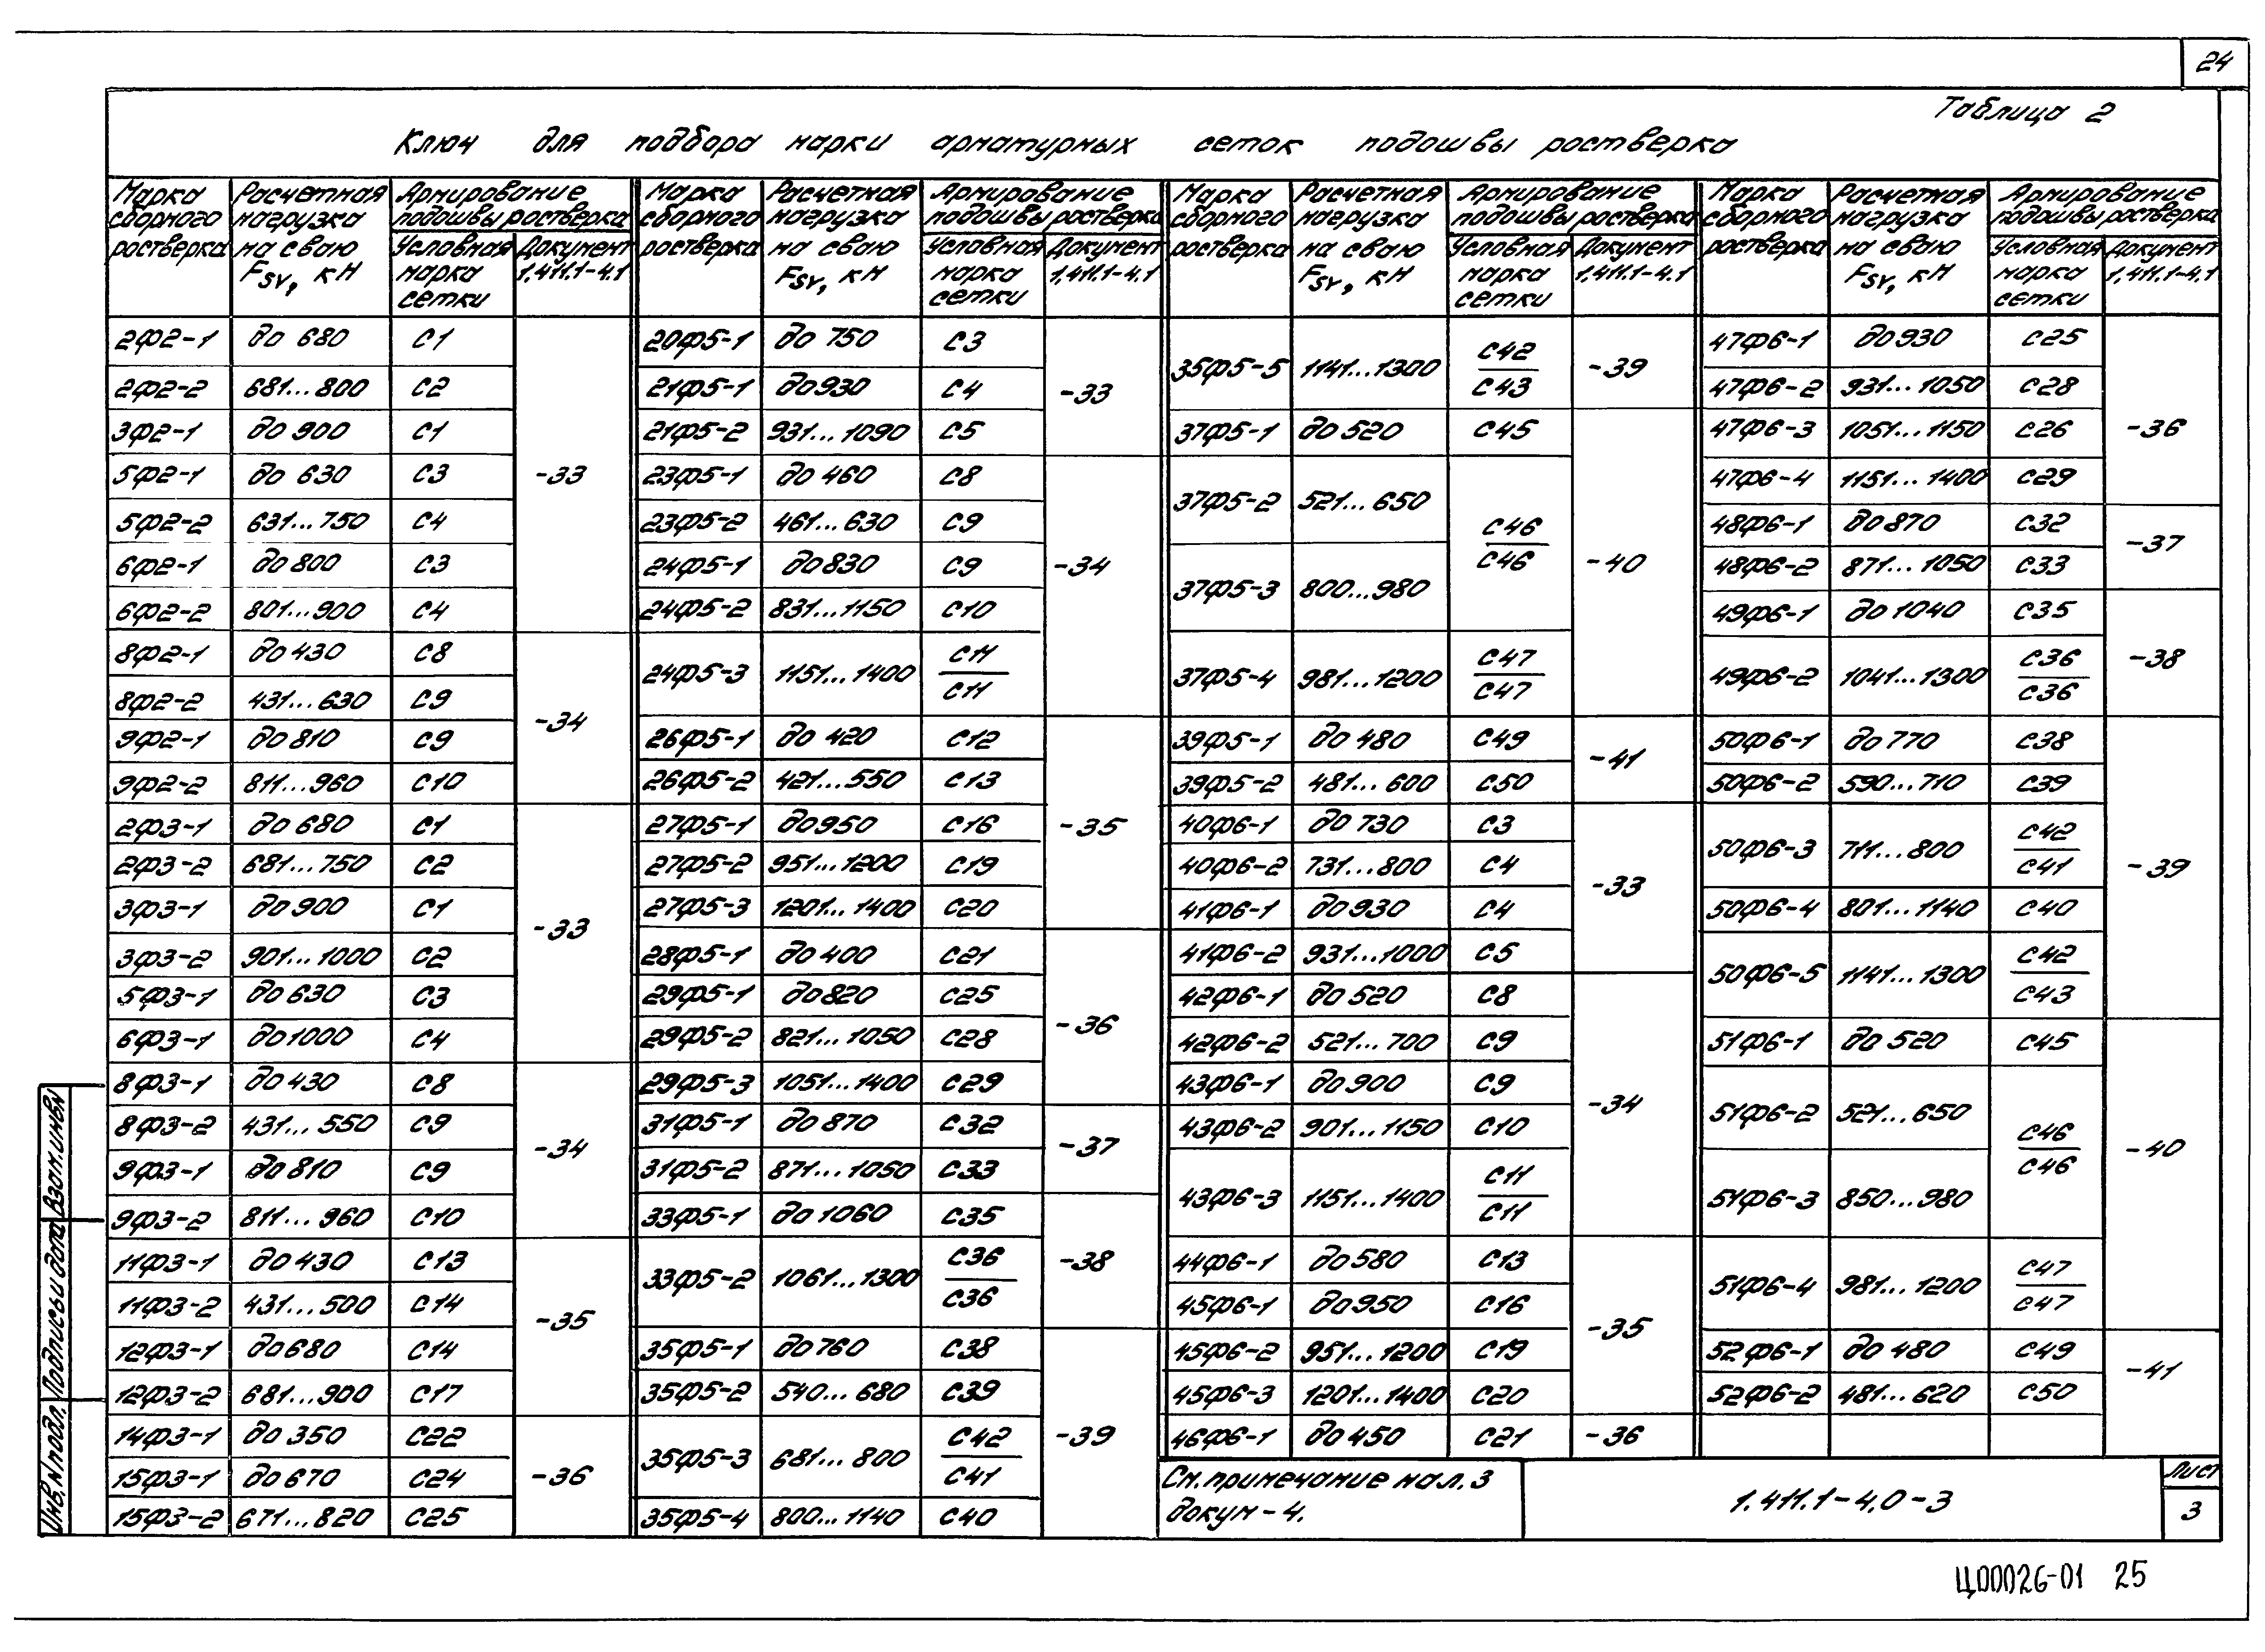 24
Таблица 2
Ключ для подбора марки арматурных сеток подошвы ростверка
Марка сборного ростверка | Расчетная нагрузка на сваю Fsv, кН | Армирование подошвы ростверка | Условная марка сетки | Документ 1.411.1-4.1
2Ф2-1 до 680 С1
2Ф2-2 681...800 С2
3Ф2-1 до 900 С1
5Ф2-1 до 630 С3 -33
5Ф2-2 631...750 С4
6Ф2-1 до 800 С3
6Ф2-2 801...900 С4
8Ф2-1 до 430 С8
8Ф2-2 431...630 С9 -34
9Ф2-1 до 810 С9
9Ф2-2 811...960 С10
2Ф3-1 до 680 С1
2Ф3-2 681...750 С2
3Ф3-1 до 900 С1 -33
3Ф3-2 901...1000 С2
5Ф3-1 до 630 С3
6Ф3-1 до 1000 С4
8Ф3-1 до 430 С8
8Ф3-2 431...550 С9 -34
9Ф3-1 до 810 С9
9Ф3-2 811...960 С10
11Ф3-1 до 430 С13
11Ф3-2 431...500 С14 -35
12Ф3-1 до 680 С14
12Ф3-2 681...900 С17
14Ф3-1 до 350 С22
15Ф3-1 до 670 С24 -36
15Ф3-2 671...820 С25
Марка сборного ростверка | Расчетная нагрузка на сваю Fsv, кН | Армирование подошвы ростверка | Условная марка сетки | Документ 1.411.1-4.1
20Ф5-1 до 750 С3
21Ф5-1 до 930 С4 -33
21Ф5-2 931...1090 С5
23Ф5-1 до 460 С8
23Ф5-2 461...630 С9
24Ф5-1 до 830 С9 -34
24Ф5-2 831...1150 С10
24Ф5-3 1151...1400 С11/С11
26Ф5-1 до 420 С12
26Ф5-2 421...550 С13
27Ф5-1 до 950 С16 -35
27Ф5-2 951...1200 С19
27Ф5-3 1201...1400 С20
28Ф5-1 до 400 С21
29Ф5-1 до 820 С25 -36
29Ф5-2 821...1050 С28
29Ф5-3 1051...1400 С29
31Ф5-1 до 870 С32 -37
31Ф5-2 871...1050 С33
33Ф5-1 до 1060 С35 -38
33Ф5-2 1061...1300 С36/С36
35Ф5-1 до 760 С38
35Ф5-2 540...680 С39 -39
35Ф5-3 681...800 С42/С41
35Ф5-4 800...1140 С40
Марка сборного ростверка | Расчетная нагрузка на сваю Fsv, кН | Армирование подошвы ростверка | Условная марка сетки | Документ 1.411.1-4.1
35Ф5-5 1141...1300 С42/С43 -39
37Ф5-1 до 520 С45
37Ф5-2 521...650 С46/С46 -40
37Ф5-3 800...980
37Ф5-4 981...1200 С47/С47
39Ф5-1 до 480 С49 -41
39Ф5-2 481...600 С50
40Ф6-1 до 730 С3
40Ф6-2 731...800 С4 -33
41Ф6-1 до 930 С4
41Ф6-2 931...1000 С5
42Ф6-1 до 520 С8
42Ф6-2 521...700 С9
43Ф6-1 до 900 С9 -34
43Ф6-2 901...1150 С10
43Ф6-3 1151...1400 С11/С11
44Ф6-1 до 580 С13
45Ф6-1 до 950 С16 -35
45Ф6-2 951...1200 С19
45Ф6-3 1201...1400 С20
46Ф6-1 до 450 С21 -36
Марка сборного ростверка | Расчетная нагрузка на сваю Fsv, кН | Армирование подошвы ростверка | Условная марка сетки | Документ 1.411.1-4.1
47Ф6-1 до 930 С25
47Ф6-2 931...1050 С28
47Ф6-3 1051...1150 С26 -36
47Ф6-4 1151...1400 С29
48Ф6-1 до 870 С32 -37
48Ф6-2 871...1050 С33
49Ф6-1 до 1040 С35 -38
49Ф6-2 1041...1300 С36/С36
50Ф6-1 до 770 С38
50Ф6-2 590...710 С39
50Ф6-3 711...800 С42/С41 -39
50Ф6-4 801...1140 С40
50Ф6-5 1141...1300 С42/С43
51Ф6-1 до 520 С45
51Ф6-2 521...650 С46/С46 -40
51Ф6-3 850...980
51Ф6-4 981...1200 С47/С47
52Ф6-1 до 480 С49 -41
52Ф6-2 481...620 С50
См. примечание на л. 3
докум - 4.
1.411.1-4.0-3
Лист
3
Инв. N подл. Подпись и дата Взам. инв. N
Ц00026-01 25